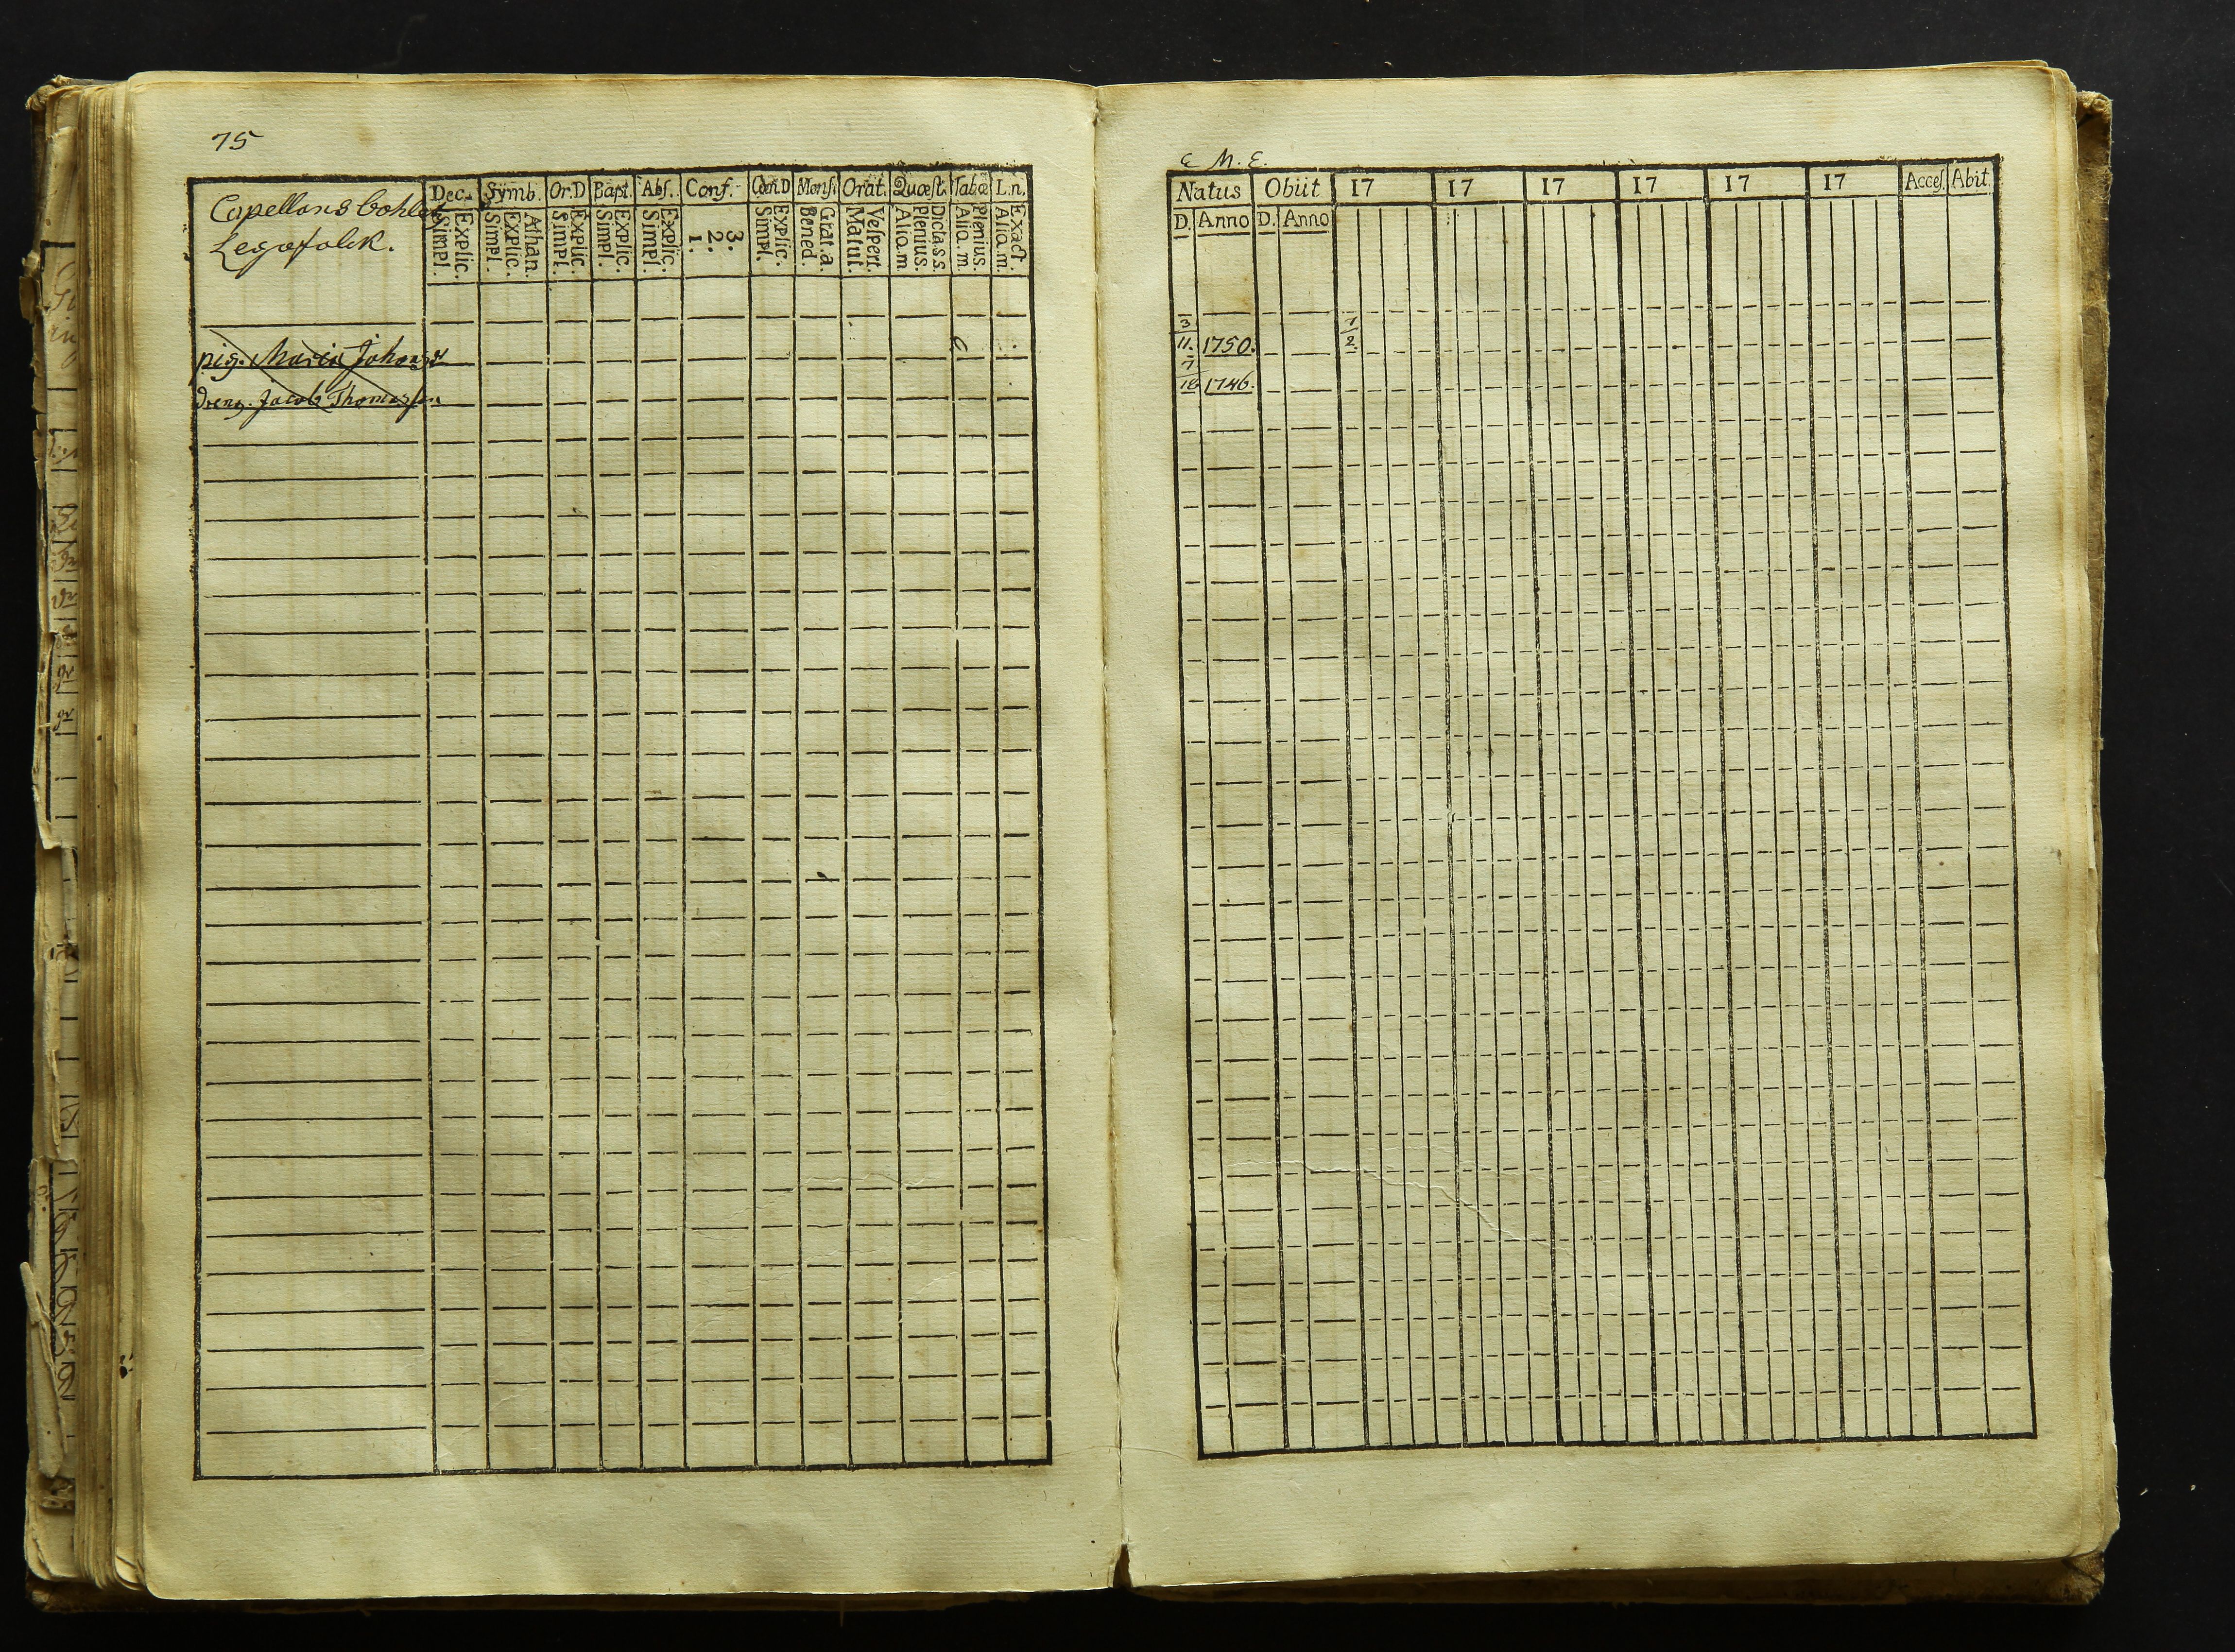 75
Capellans bohlets
Legofolck.
Dec. Symb. Or.D Bapt. Abs. Conf. Cœn.D Mens. Orat. Quæst. Tabæ L.n.
Simpl. Explic. Simpl. Explic. Athan. Simpl. Explic. Simpl. Explic. Simpl. Explic. 1. 2. 3. Simpl. Explic. Bened. Grat.a. Matut. Vespert. Aliq.m. Plenius. Dcta.s.s. Aliq.m. Plenius. Aliq.m. Exact.
pig. Maria Johans
dreng. Jacob Thomasson
M. E.
Natus Obiit 17 17 17 17 17 17 Acces. Abit.
D. Anno D. Anno
3/11. 1750. 1/2.
7/18 1746.